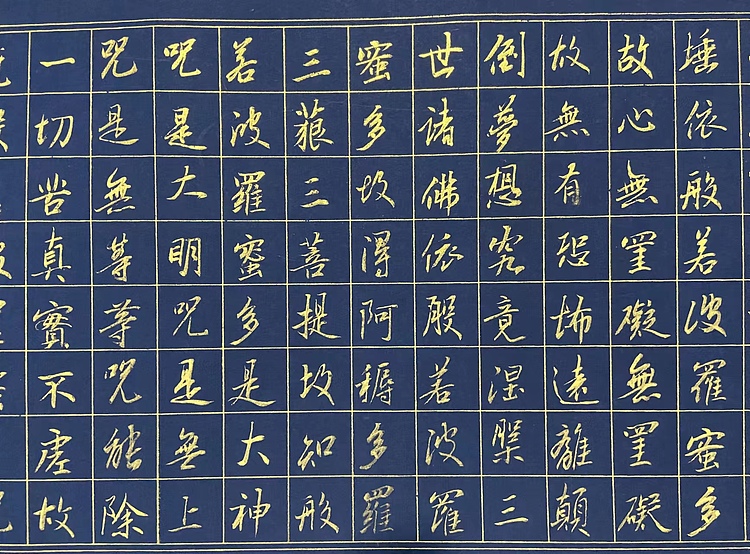 埵依般若波羅蜜多
故心無罣礙無罣礙
故無有恐怖遠離顛
倒夢想究竟涅槃三
世諸佛依般若波羅
蜜多故得阿耨多羅
三藐三菩提故知般
若波羅蜜多是大神
呪是大明呪是無上
咒是無等等咒能除
一切苦真實不虛故